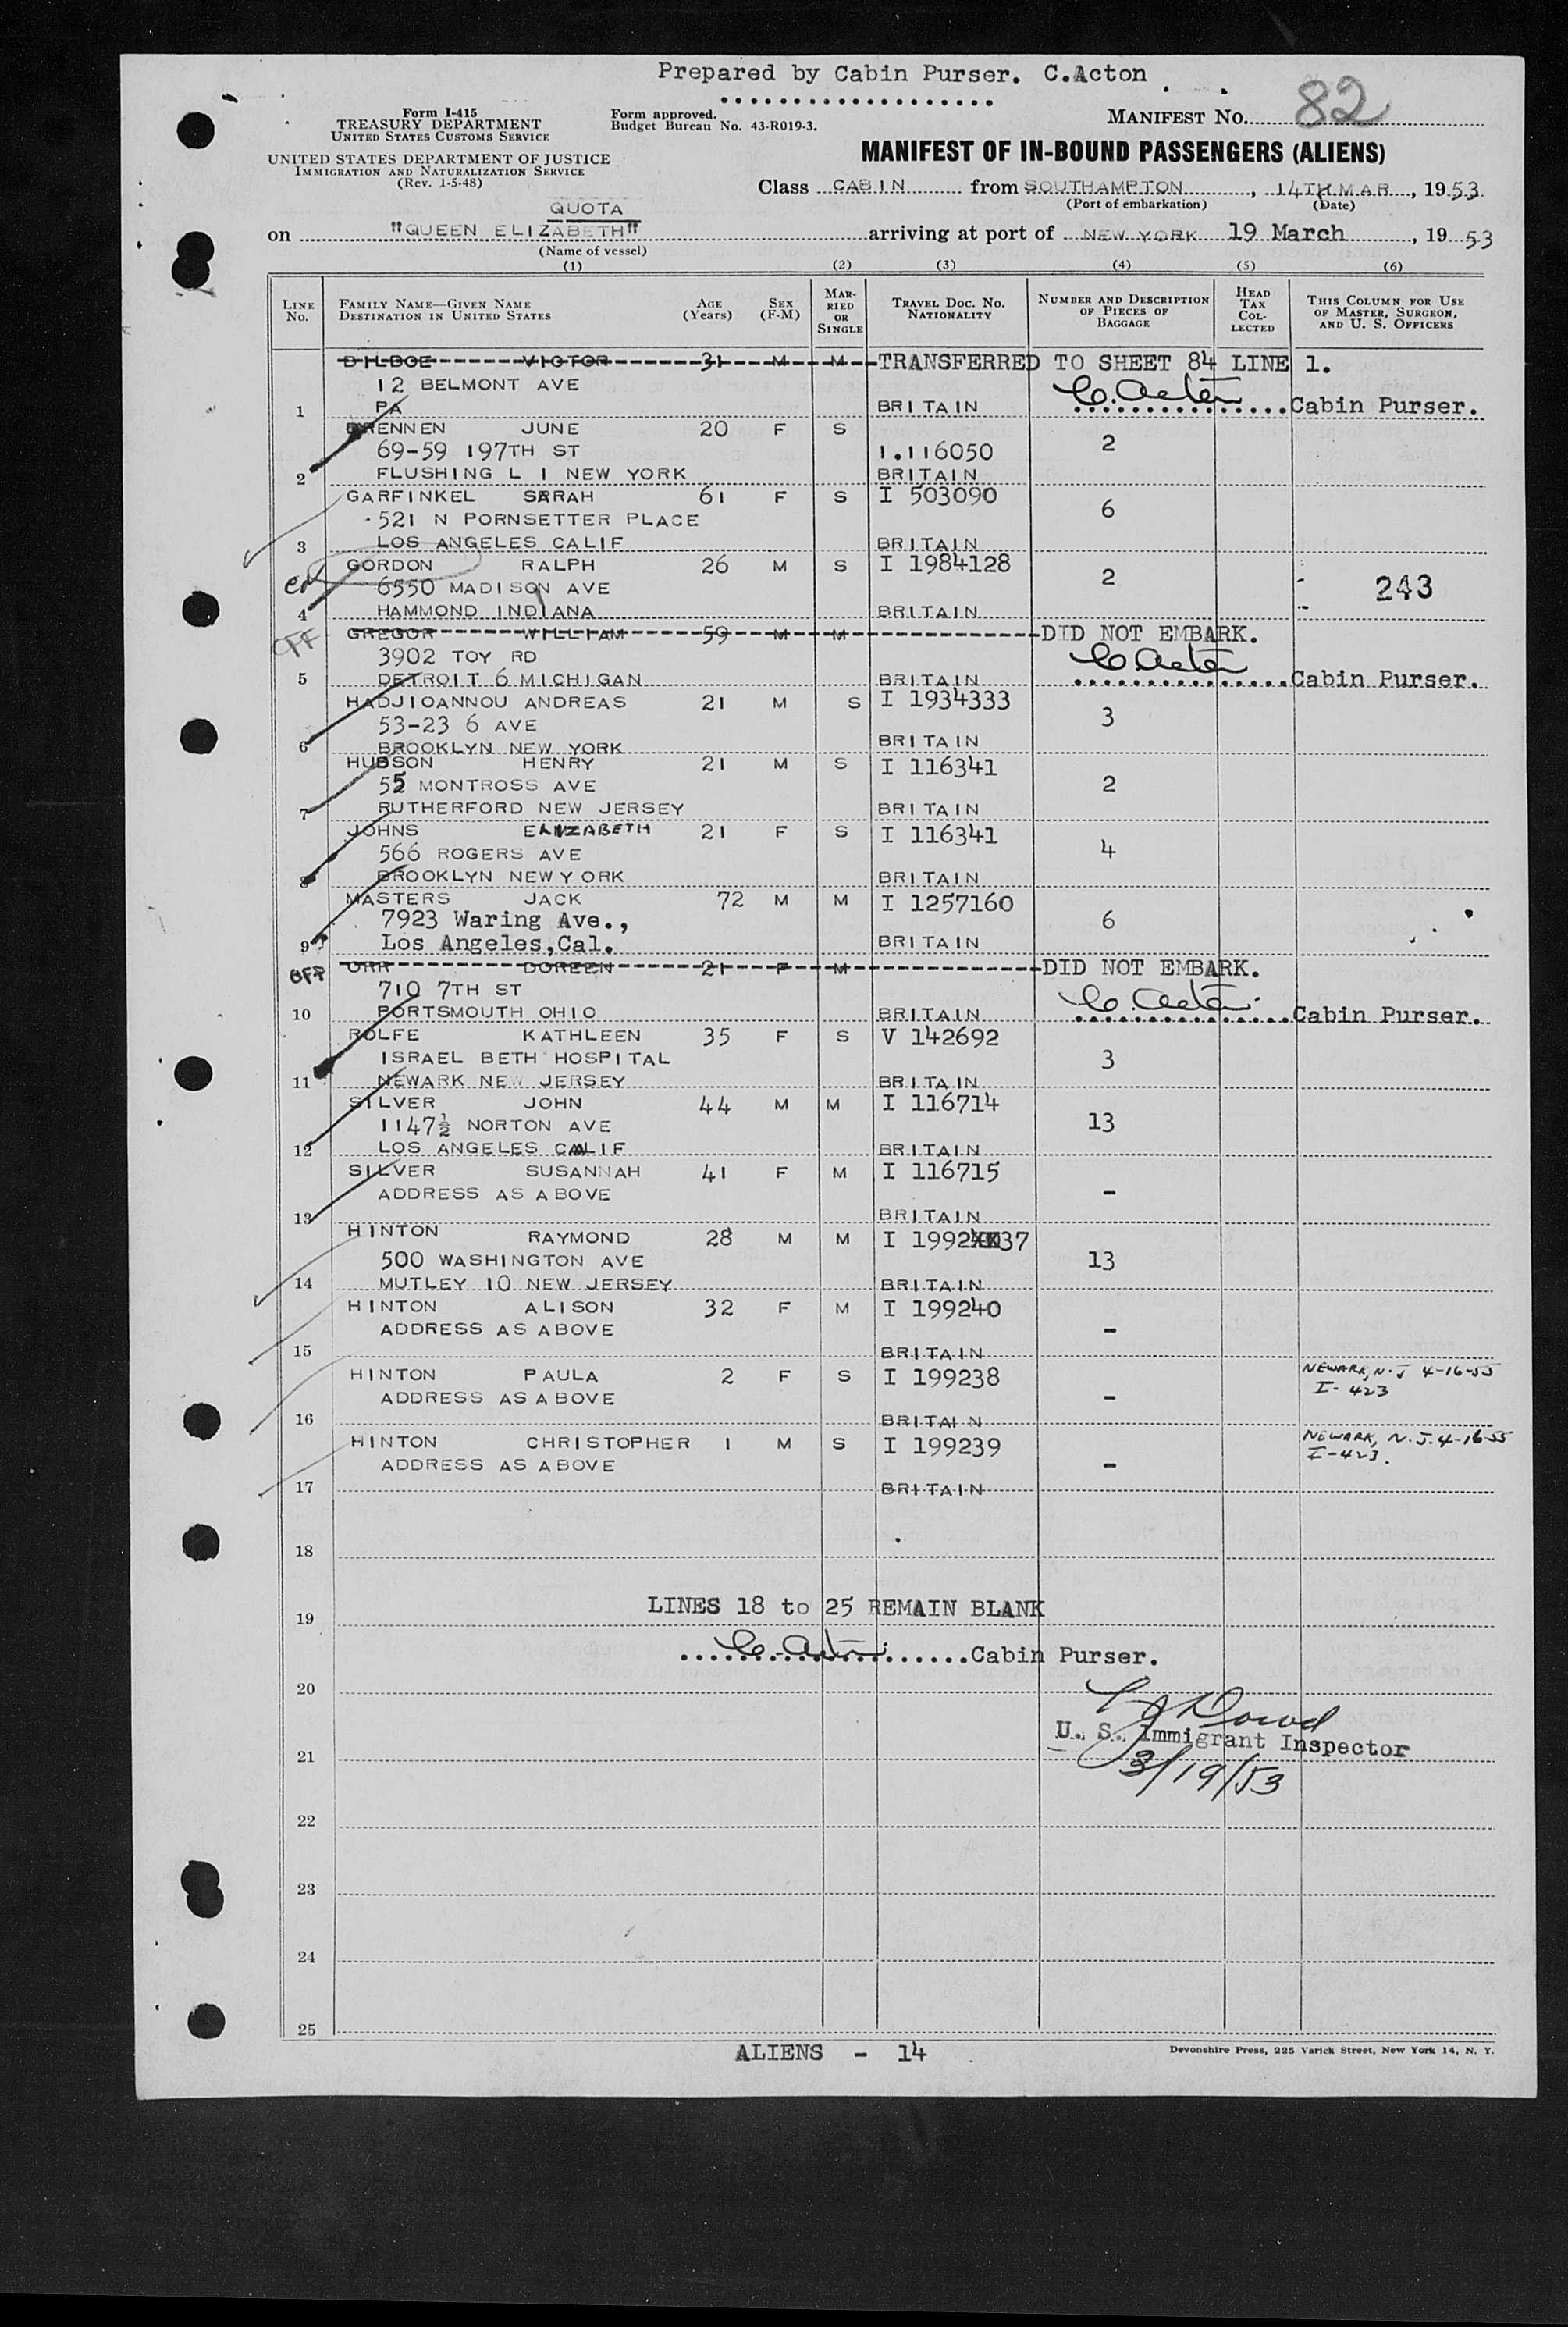 Prepared by Cabin Purser. C.Acton
Form I-415
TREASURY DEPARTMENT
UNITED STATES CUSTOMS SERVICE
Form approved.
Budget Bureau No. 43-R019-3.
MANIFEST No. 82
UNITED STATES DEPARTMENT OF JUSTICE
IMMIGRATION AND NATURALIZATION SERVICE
(Rev. 1-5-48)
MANIFEST OF IN-BOUND PASSENGERS (ALIENS)
Class CABIN from SOUTHAMPTON, 14TH MAR, 1953
(Port of embarkation) (Date)
QUOTA
on "QUEEN ELIZABETH" arriving at port of NEW YORK 19 March, 1953
(Name of vessel)
(1) (2) (3) (4) (5) (6)
LINE No. FAMILY NAME—GIVEN NAME DESTINATION IN UNITED STATES AGE (Years) SEX (F-M) MARRIED OR SINGLE TRAVEL DOC. No. NATIONALITY NUMBER AND DESCRIPTION OF PIECES OF BAGGAGE HEAD TAX COLLECTED THIS COLUMN FOR USE OF MASTER, SURGEON, AND U. S. OFFICERS
DILBOE VICTOR 31 M M TRANSFERRED TO SHEET 84 LINE 1.
12 BELMONT AVE C. Acton
1 PA BRITAIN Cabin Purser.
BRENNEN JUNE 20 F S
69-59 197TH ST 1.116050 2
2 FLUSHING L I NEW YORK BRITAIN
GARFINKEL SARAH 61 F S I 503090
521 N PORNSETTER PLACE 6
3 LOS ANGELES CALIF BRITAIN
GORDON RALPH 26 M S I 1984128
6550 MADISON AVE 2 243
4 HAMMOND INDIANA BRITAIN
OFF GREGOR WILLIAM 59 M M DID NOT EMBARK.
3902 TOY RD C. Acton
5 DETROIT 6 MICHIGAN BRITAIN Cabin Purser.
HADJIOANNOU ANDREAS 21 M S I 1934333
53-23 6 AVE 3
6 BROOKLYN NEW YORK BRITAIN
HUDSON HENRY 21 M S I 116341
55 MONTROSS AVE 2
7 RUTHERFORD NEW JERSEY BRITAIN
JOHNS ELIZABETH 21 F S I 116341
566 ROGERS AVE 4
8 BROOKLYN NEWYORK BRITAIN
MASTERS JACK 72 M M I 1257160
7923 Waring Ave., 6
9 Los Angeles,Cal. BRITAIN
OFF ORR DOREEN 21 F M DID NOT EMBARK.
710 7TH ST C. Acton
10 PORTSMOUTH OHIO BRITAIN Cabin Purser.
ROLFE KATHLEEN 35 F S V 142692
ISRAEL BETH HOSPITAL 3
11 NEWARK NEW JERSEY BRITAIN
SILVER JOHN 44 M M I 116714
1147½ NORTON AVE 13
12 LOS ANGELES CALIF BRITAIN
SILVER SUSANNAH 41 F M I 116715
ADDRESS AS ABOVE -
13 BRITAIN
HINTON RAYMOND 28 M M I 1992XX37
500 WASHINGTON AVE 13
14 MUTLEY 10 NEW JERSEY BRITAIN
HINTON ALISON 32 F M I 199240
ADDRESS AS ABOVE -
15 BRITAIN
HINTON PAULA 2 F S I 199238 NEWARK, N.J 4-16-55
ADDRESS AS ABOVE - I-423
16 BRITAIN
HINTON CHRISTOPHER 1 M S I 199239 NEWARK, N.J. 4-16-55
ADDRESS AS ABOVE - I-423.
17 BRITAIN
18
LINES 18 to 25 REMAIN BLANK
19
C. Acton Cabin Purser.
20
Dowd
U. S. Immigrant Inspector
21
3/19/53
22
23
24
25
ALIENS - 14
Devonshire Press, 225 Varick Street, New York 14, N. Y.